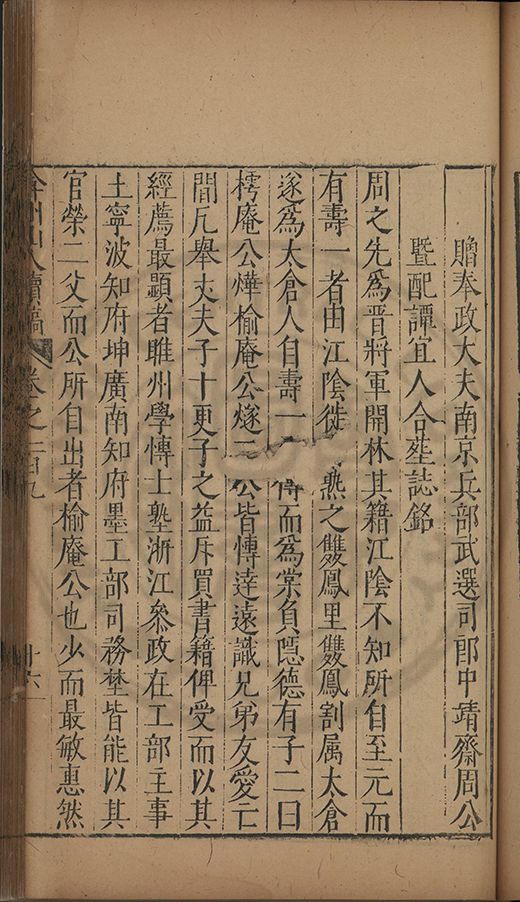 贈奉政大夫南京兵部武選司郎中靖齋周公
暨配譚宜人合塟誌銘
周之先為晋將軍開林其籍江陰不知所自至元而
有壽一者由江陰徙熟之雙鳳里雙鳳割属太倉
遂為太倉人自壽一傳而為棠負隱德有子二曰
樗庵公燁榆庵公燧二公皆愽逹遠識兄弟友愛亡
間凡舉丈夫子十更子之益斥買書籍俾受而以其
經薦最顯者睢州學愽士塾浙江叅政在工部主事
土寧波知府坤廣南知府墨工部司務埜皆能以其
官榮二父而公所自出者榆庵公也少而最敏惠然
弇州山人續稿 卷之 十六